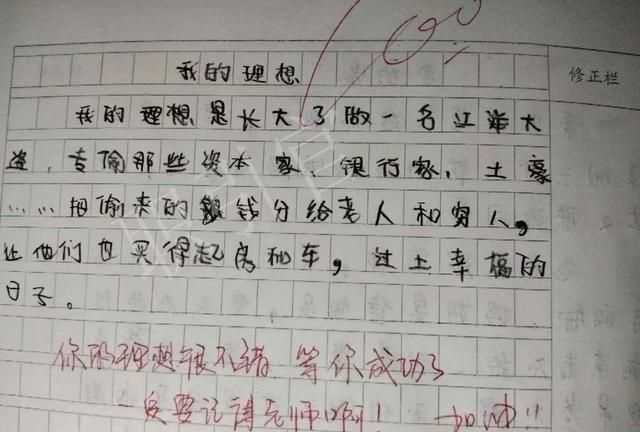 我的理想
修正栏
我的理想是长大了做一名江洋大
盗,专偷那些资本家、银行家、土豪
……把偷来的银钱分给老人和穷人。
让他们也买得起房和车,过上幸福的
日子。
你的理想很不错 等你成功了
一定要记得老师啊! 加油!!